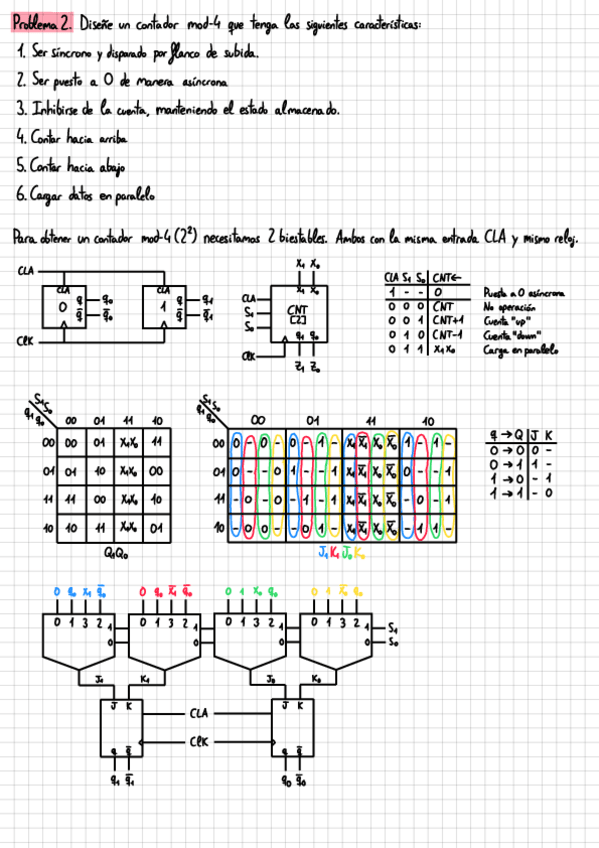 Problema 2. Diseñe un contador mod-4 que tenga las siguientes características:
1. Ser síncrono y disparado por flanco de subida.
2. Ser puesto a 0 de manera asíncrona
3. Inhibirse de la cuenta, manteniendo el estado almacenado.
4. Contar hacia arriba
5. Contar hacia abajo
6. Cargar datos en paralelo
Para obtener un contador mod-4 (2²) necesitamos 2 biestables. Ambos con la misma entrada CLA y mismo reloj.
CLA
CLA
0
q q₀
q̅ q̅₀
CLA
1
q q₁
q̅ q̅₁
CLK
X₁ X₀
X₁ X₀
CLA
S₁
S₀
CNT
[2]
CLK
q₁ q₀
Z₁ Z₀
CLA S₁ S₀ CNT←
1 - - 0 Puesta a 0 asíncrona
0 0 0 CNT No operación
0 0 1 CNT+1 Cuenta "up"
0 1 0 CNT-1 Cuenta "down"
0 1 1 X₁X₀ Carga en paralelo
S₁S₀
q₁q₀
00 01 11 10
00 00 01 X₁X₀ 11
01 01 10 X₁X₀ 00
11 11 00 X₁X₀ 10
10 10 11 X₁X₀ 01
Q₁Q₀
S₁S₀
q₁q₀
00 01 11 10
00 0-0- 0-1- X₁X̅₁X₀X̅₀ 1-1-
01 0--0 1--1 X₁X̅₁X₀X̅₀ 0--1
11 -0-0 -1-1 X₁X̅₁X₀X̅₀ -0-1
10 -00- -01- X₁X̅₁X₀X̅₀ -11-
J₁K₁J₀K₀
q → Q J K
0 → 0 0 -
0 → 1 1 -
1 → 0 - 1
1 → 1 - 0
0 q₀ X₁ q̅₀
0 q₀ X̅₁ q̅₀
0 1 X₀ q₀
0 1 X̅₀ q₀
0 1 3 2
0 1 3 2
0 1 3 2
0 1 3 2
1 1 1 1 S₁
0 0 0 0 S₀
J₁ K₁ J₀ K₀
J K
J K
CLA
CLK
q q̅
q q̅
q₁ q̅₁
q₀ q̅₀